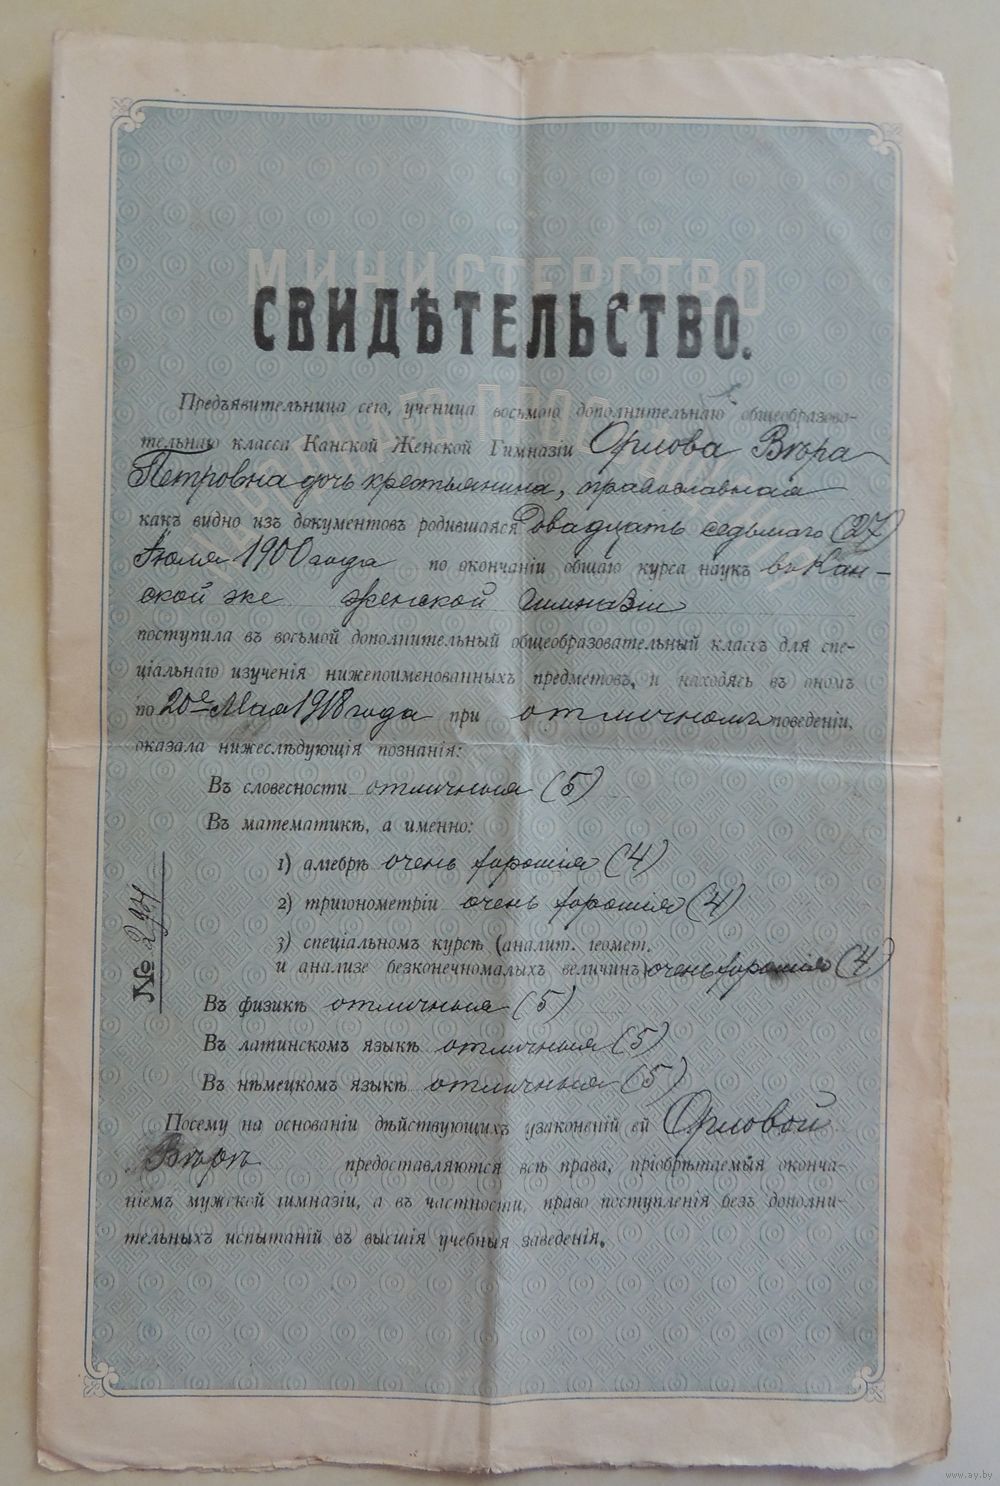 МИНИСТЕРСТВО
СВИДѢТЕЛЬСТВО.
Предъявительница сего, ученица восьмого дополнительнаго общеобразова-
тельнаго класса Канской Женской Гимназіи Орлова Вѣра
Петровна дочь крестьянина, православная
какъ видно изъ документовъ родившаяся двадцать седьмаго (27)
Іюля 1900 года по окончаніи общаго курса наукъ въ Кан-
ской же женской гимназіи
поступила въ восьмой дополнительный общеобразовательный классъ для спе-
ціальнаго изученія нижепоименованныхъ предметовъ, и находясь въ ономъ
по 20е Мая 1918 года при отличномъ поведеніи,
оказала нижеслѣдующія познанія:
Въ словесности отличныя (5)
Въ математикѣ, а именно:
1) алгебрѣ очень хорошія (4)
2) тригонометріи очень хорошія (4)
3) спеціальномъ курсѣ (аналит. геомет.
и анализе безконечномалыхъ величинъ) очень хорошія (4)
Въ физикѣ отличныя (5)
Въ латинскомъ языкѣ отличныя (5)
Въ нѣмецкомъ языкѣ отличныя (5)
Посему на основаніи дѣйствующихъ узаконеній ей Орловой
Вѣрѣ предоставляются всѣ права, пріобрѣтаемыя оконча-
ніемъ мужской гимназіи, а въ частности, право поступленія безъ дополни-
тельныхъ испытаній въ высшія учебныя заведенія.
№ 294
www.ay.by